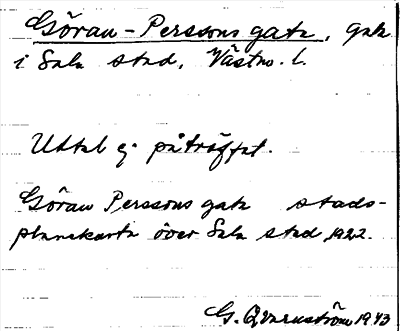 Göran-Perssons gata, gata
i Sala stad, Västm. l.
Uttal ej påträffat.
Göran Perssons gata stads-
plankarta över Sala stad 1922.
G. Qvarnström 1943